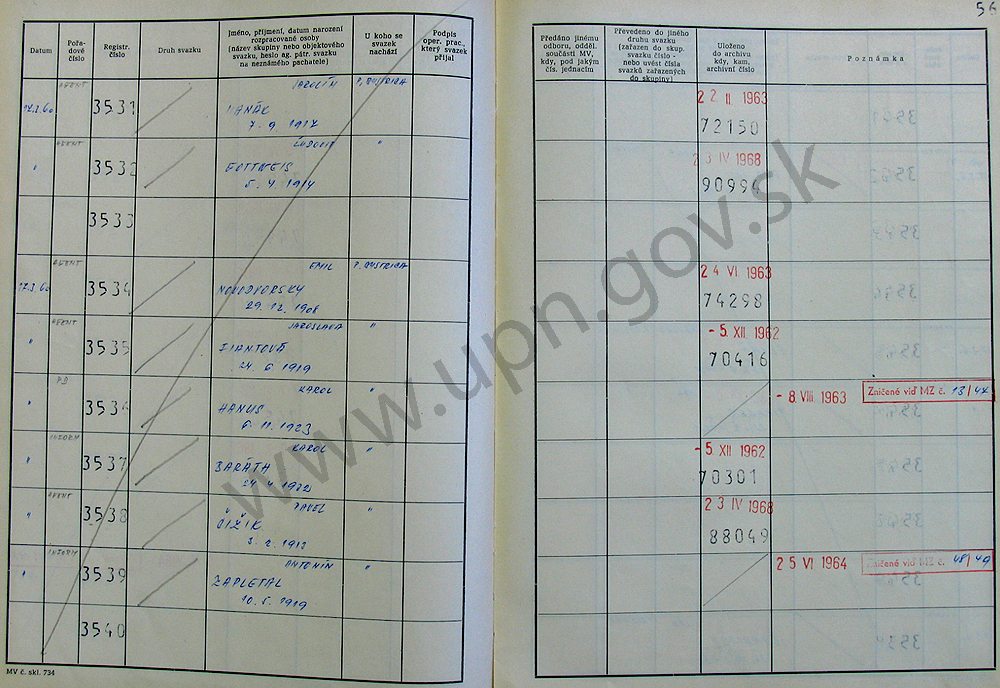 56
Datum
Pořa-
dové
číslo
Registr.
číslo
Druh svazku
Jméno, příjmení, datum narození
rozpracované osoby
(název skupiny nebo objektového
svazku, heslo ag. pátr. svazku
na neznámého pachatele)
U koho se
svazek
nachází
Podpis
oper. prac.,
který svazek
přijal
Předáno jinému
odboru, odděl.
součásti MV,
kdy, pod jakým
čís. jednacím
Převedeno do jiného
druhu svazku
(zařazen do skup.
svazku číslo -
nebo uvést čísla
svazků zařazených
do skupiny)
Uloženo
do archivu
kdy, kam,
archivní číslo
Poznámka
AGENT
3531
KAROLÍN
HANÁK
7. 9. 1917
P. BYSTRICA
22 II 1963
72150
AGENT
"
3532
ĽUDOVIT
5. 4. 1914
"
23 IV 1968
90994
3533
AGENT
17.3.60
3534
EMIL
NOVODVORSKY
29. 12. 1908
P. BYSTRICA
24 VI 1963
74298
AGENT
"
3535
JAROSLAVA
24. 6. 1919
"
- 5. XII. 1962
70416
PB
"
3536
KAROL
HANUS
6. 11. 1923
"
- 8 VIII. 1963
Zničené viď MZ č. 13/47
INFORM
"
3537
KAROL
BARÁTH
24. 4. 1922
"
- 5 XII 1962
70301
AGENT
"
3538
PAVEL
ČIŽIK
3. 2. 1912
"
23 IV 1968
88049
INFORM
"
3539
ANTONIN
ZAPLETAL
10. 5. 1919
"
25 VI 1964
Zničené viď MZ č. 48/49
3540
MV č. skl. 734
www.upn.gov.sk